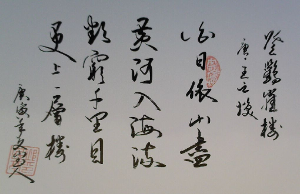 登鸛雀楼
唐·王之渙
白日依山盡
黃河入海流
欲窮千里目
更上一層樓
庚寅年